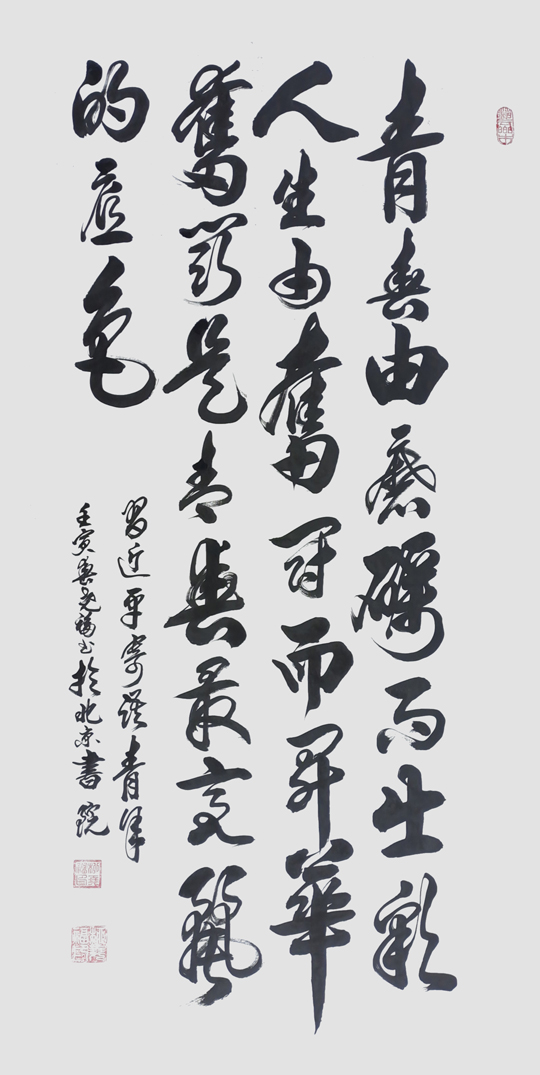 青春由磨礪而出彩
人生由奮鬥而升華
奮鬥是青春最亮麗
的底色
習近平寄語青年
壬寅春福书於北京書院